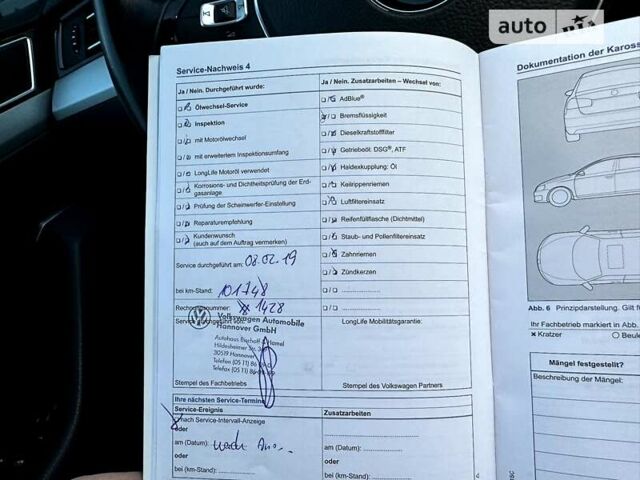 auto
RIA
Service-Nachweis 4
Ja / Nein. Durchgeführt wurde:
Ölwechsel-Service
Inspektion
mit Motorölwechsel
mit erweitertem Inspektionsumfang
LongLife Motoröl verwendet
Korrosions- und Dichtheitsprüfung der Erd-
gasanlage
Prüfung der Scheinwerfer-Einstellung
Reparaturempfehlung
Kundenwunsch
(auch auf dem Auftrag vermerken)
Service durchgeführt am: 08.02.19
bei km-Stand: 101748
Rechnungsnummer 1428
Service durchgeführt von:
Volkswagen Automobile
Hannover GmbH
Autohaus Bischoff & Hamel
Hildesheimer Str.
30519 Hannover
Telefon (05 11) 86
Telefax (05 11) 86
Stempel des Fachbetriebs
Ja / Nein. Zusatzarbeiten – Wechsel von:
AdBlue®
Bremsflüssigkeit
Dieselkraftstofffilter
Getriebeöl: DSG®, ATF
Haldexkupplung: Öl
Keilrippenriemen
Luftfiltereinsatz
Reifenfüllflasche (Dichtmittel)
Staub- und Pollenfiltereinsatz
Zahnriemen
Zündkerzen
LongLife Mobilitätsgarantie:
Stempel des Volkswagen Partners
Ihre nächsten Service-Termine
Service-Ereignis
nach Service-Intervall-Anzeige
oder
am (Datum):
oder
bei (km-Stand):
Zusatzarbeiten
am (Datum):
oder
bei (km-Stand):
Dokumentation der Kaross
Abb. 6 Prinzipdarstellung. Gilt f
Ihr Fachbetrieb markiert in Abb.
× Kratzer
O Beule
Mängel festgestellt?
Beschreibung der Mängel: